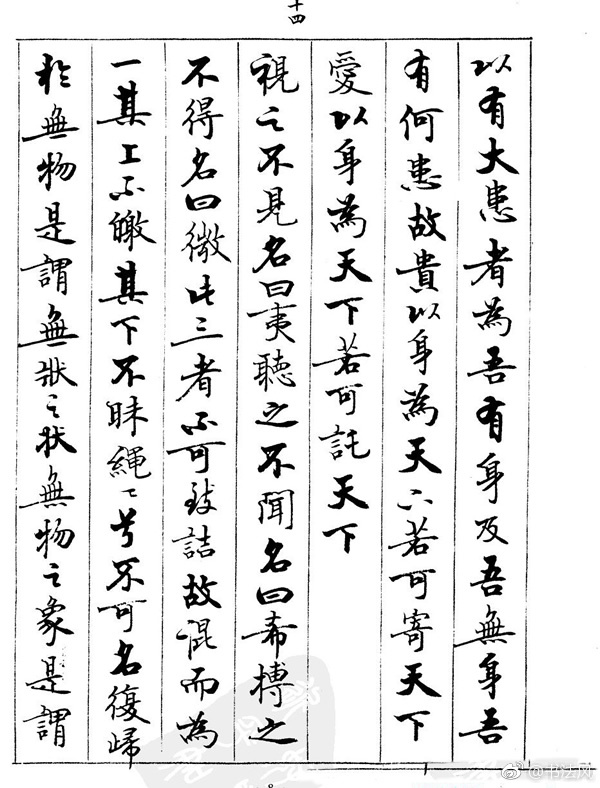 十四
以有大患者為吾有身及吾無身吾
有何患故貴以身為天下若可寄天下
愛以身為天下若可託天下
視之不見名曰夷聽之不聞名曰希搏之
不得名曰微此三者不可致詰故混而為
一其上不皦其下不昧繩〻兮不可名復歸
於無物是謂無狀之狀無物之象是謂
8
@书法网